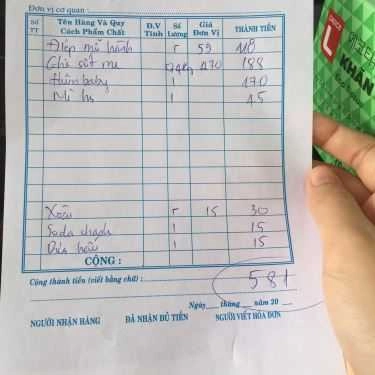 Đơn vị cơ quan :
Số TT Tên Hàng Và Quy Cách Phẩm Chất Đ.V Tính Số Lượng Giá Đơn Vị THÀNH TIỀN
Điệp mỡ hành 2 59 118
Ghẹ sốt me 470 188
170
Mì 45
Xoài 2 15 30
Soda chanh 1 15
Dưa hấu 1 15
CỘNG : 581
Cộng thành tiền (viết bằng chữ) :
Ngày tháng năm 20
NGƯỜI NHẬN HÀNG ĐÃ NHẬN ĐỦ TIỀN NGƯỜI VIẾT HÓA ĐƠN
KHĂN